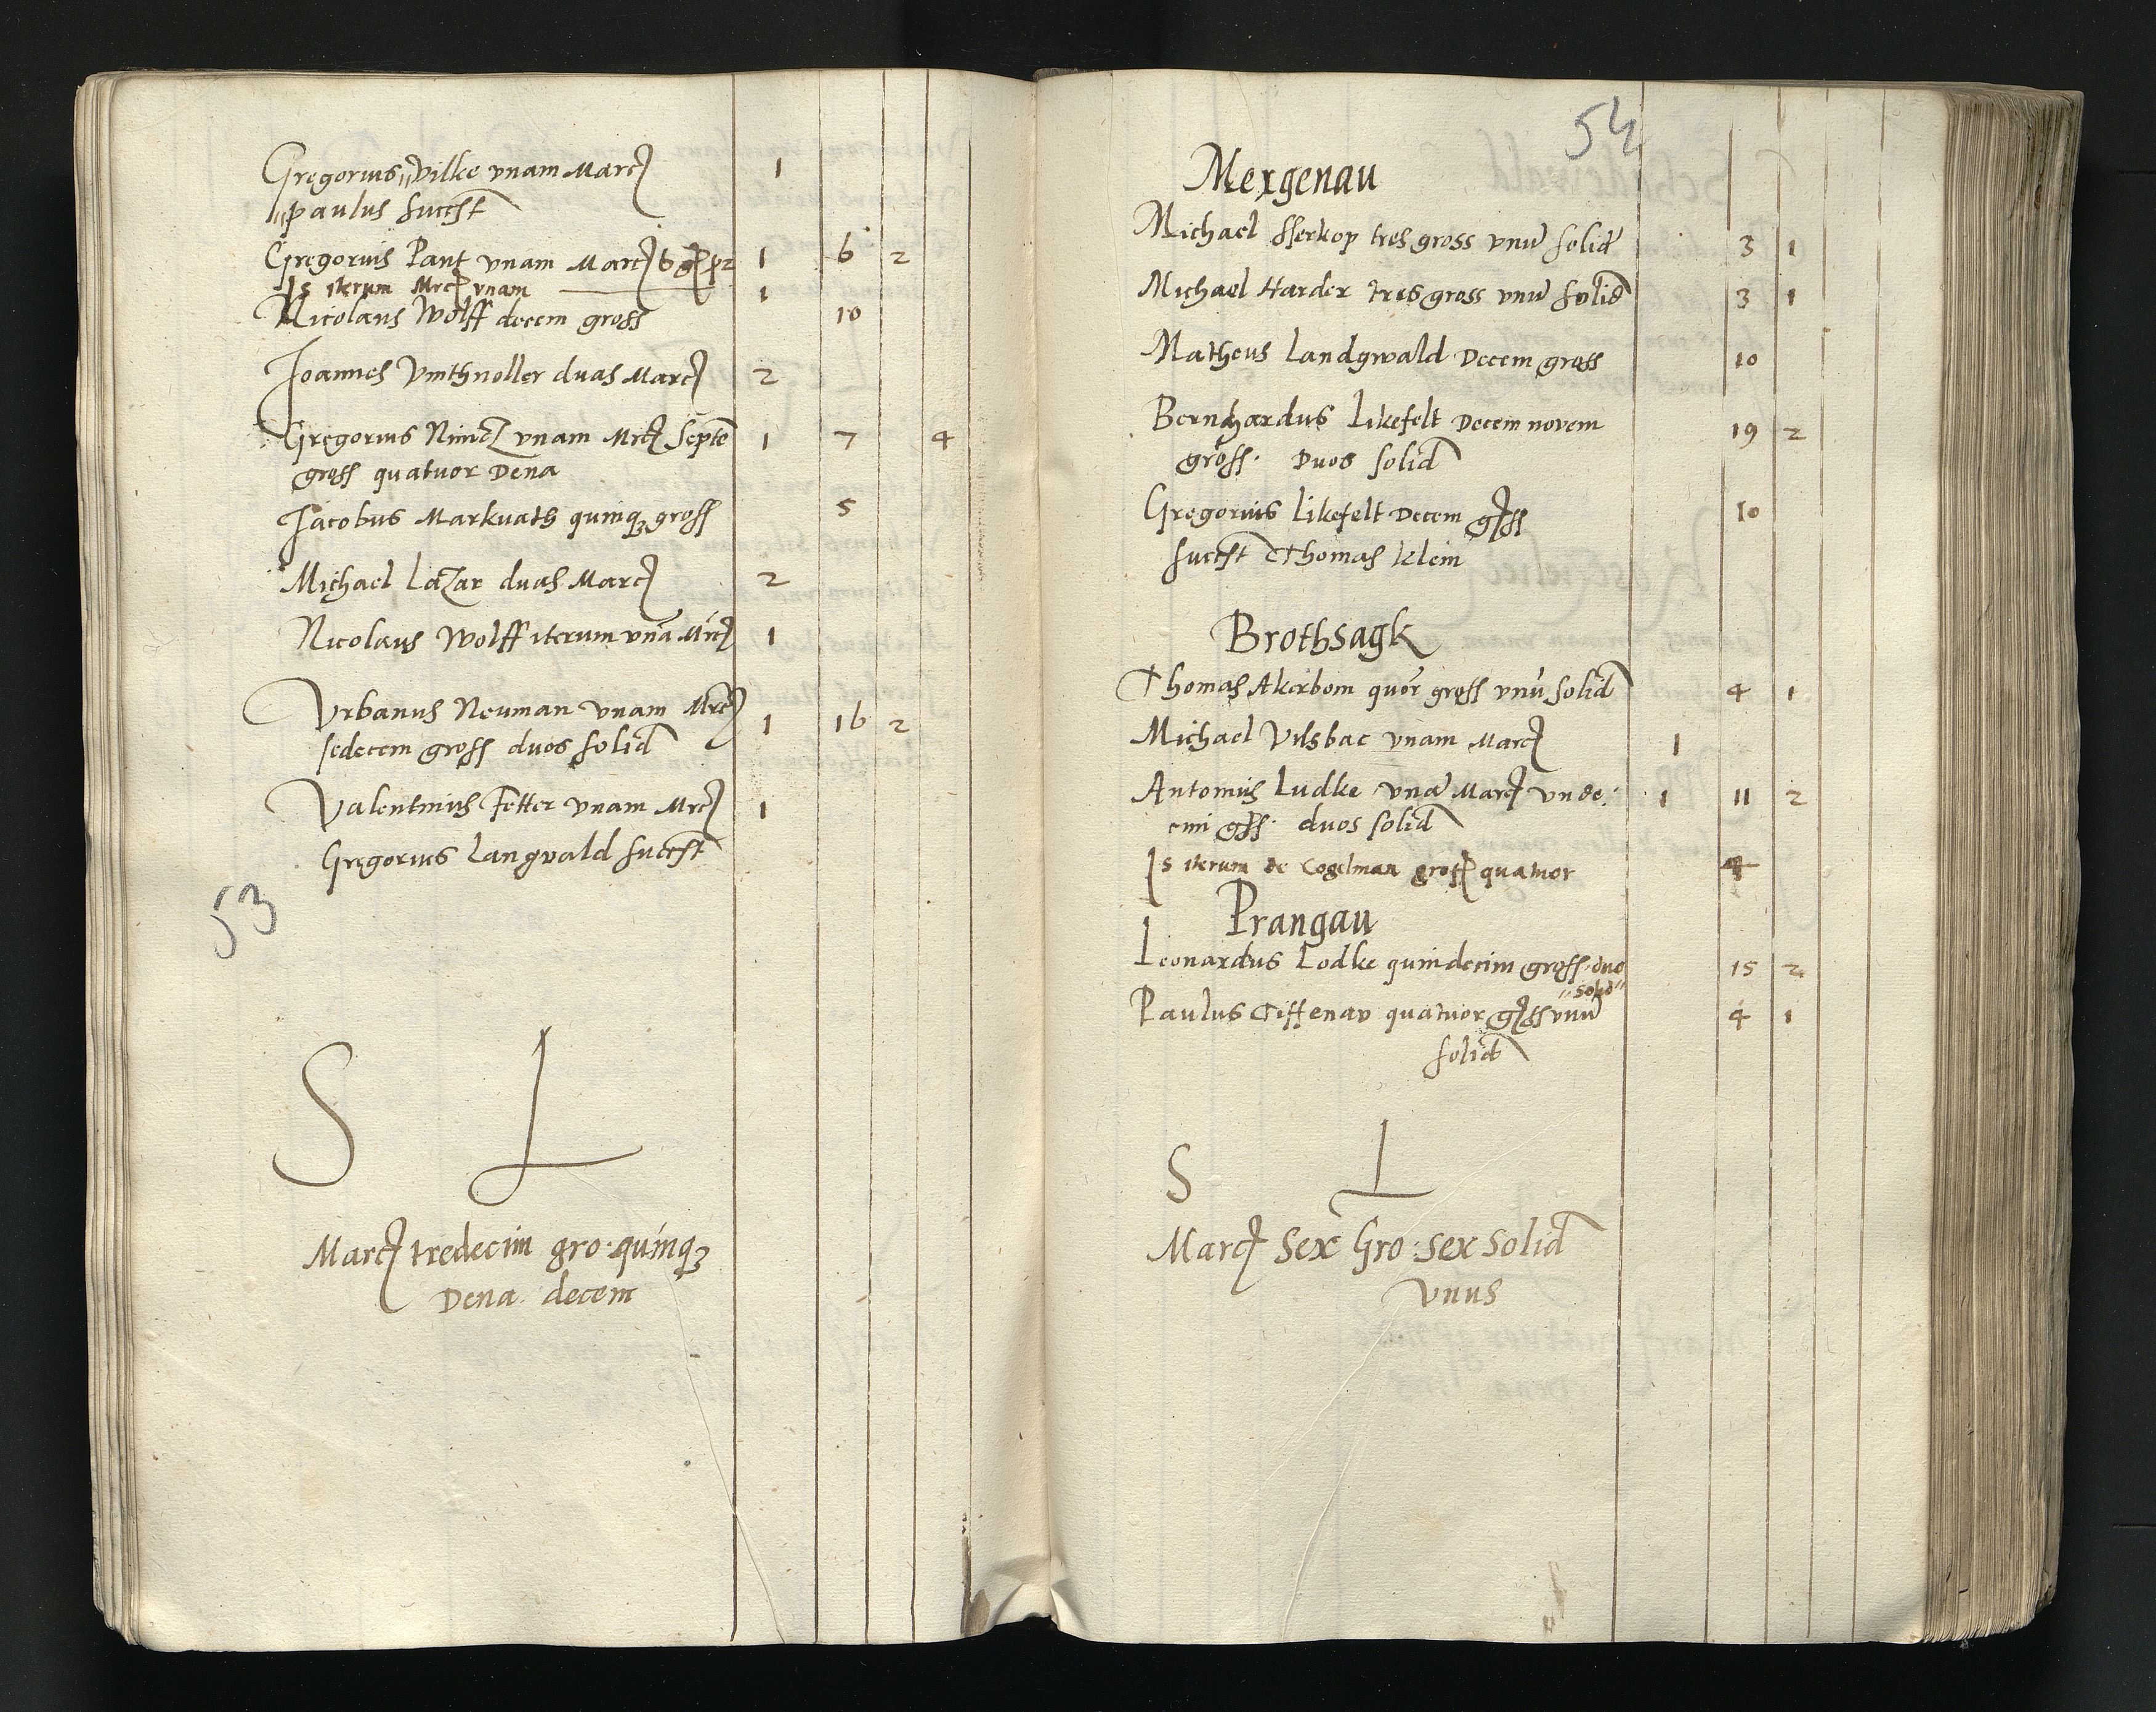 Gregorius Vilke vnam Marc 1
paulus succest
Gregorius Pant vnam Marc 6 g 2 1 6 2
Is iterum Mrc vnam 1
Nicolaus Wolff decem gross 10
Joannes Vmthnoller duas Marc 2
Gregorius Nimcz vnam Mrc septe 1 7 4
gross quatuor Dena
Jacobus Markvath quinq gross 5
Michael Lazar duas Marc 2
Nicolaus Wolff iterum vna Mrc 1
Vrbanus Neuman vnam Mrc 1 16 2
sedecem gross duos solid
Valentinus Fetter vnam Mrc 1
Gregorius Langvald succest
53
S L
Marc tredecim gro. quinq
Dena decem
54
Mergenau
Michael Sserkop tres gross vnu solid 3 1
Michael Harder tres gross vnu solid 3 1
Matheus Landgwald Decem gross 10
Bernhardus Likefelt Decem novem 19 2
gross. Duos solid
Gregorius Likefelt Decem gss 10
succest Thomas Klein
Brothsagk
Thomas Akerbom quor gross vnu solid 4 1
Michael Vilsbac vnam Marc 1
Antonius Ludke vna Marc vnde: 1 11 2
cim gss. duos solid
Is iterum de Cogelman gross quatuor 4
Prangau
Leonardus Lodke quindecim gross. duo 15 2
solid
Paulus Tiffenav quatuor gss vnu 4 1
solid
S L
Marc Sex Gro: sex Solid
Vnus